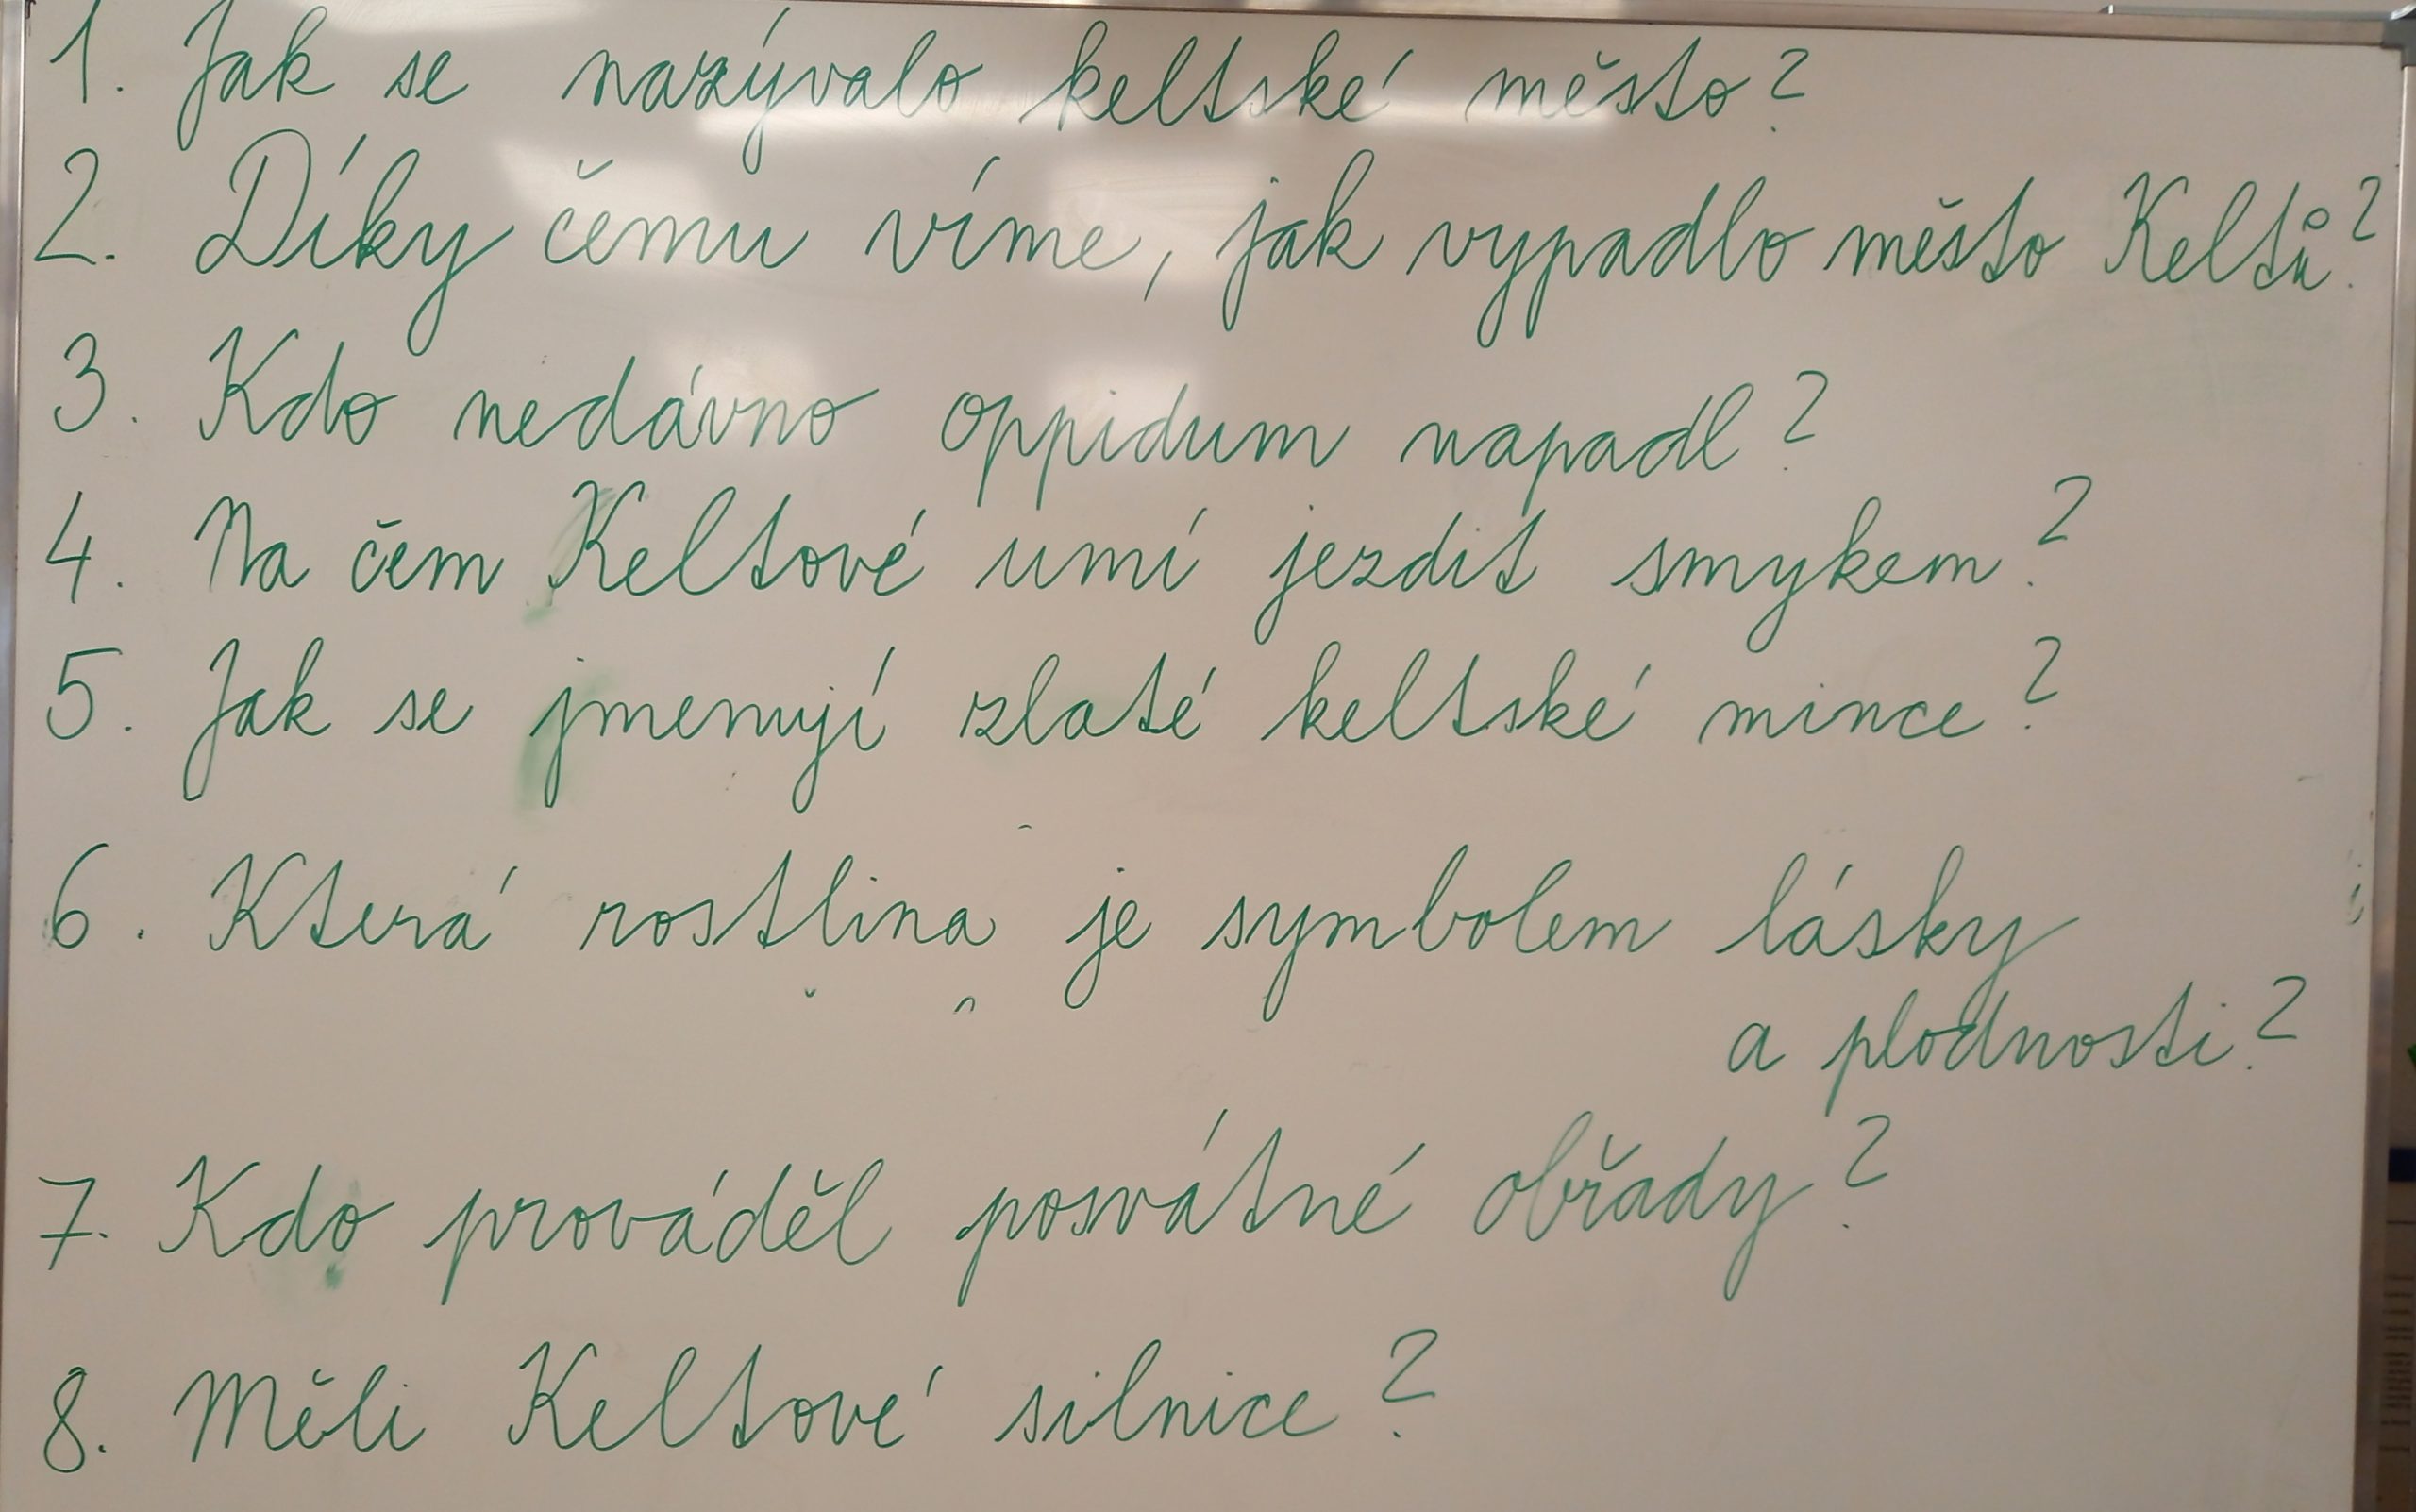 1. Jak se nazývalo keltské město?
2. Díky čemu víme, jak vypadlo město Keltů?
3. Kdo nedávno oppidum napadl?
4. Na čem Keltové umí jezdit smykem?
5. Jak se jmenují zlaté keltské mince?
6. Která rostlina je symbolem lásky
a plodnosti?
7. Kdo prováděl posvátné obřady?
8. Měli Keltové silnice?